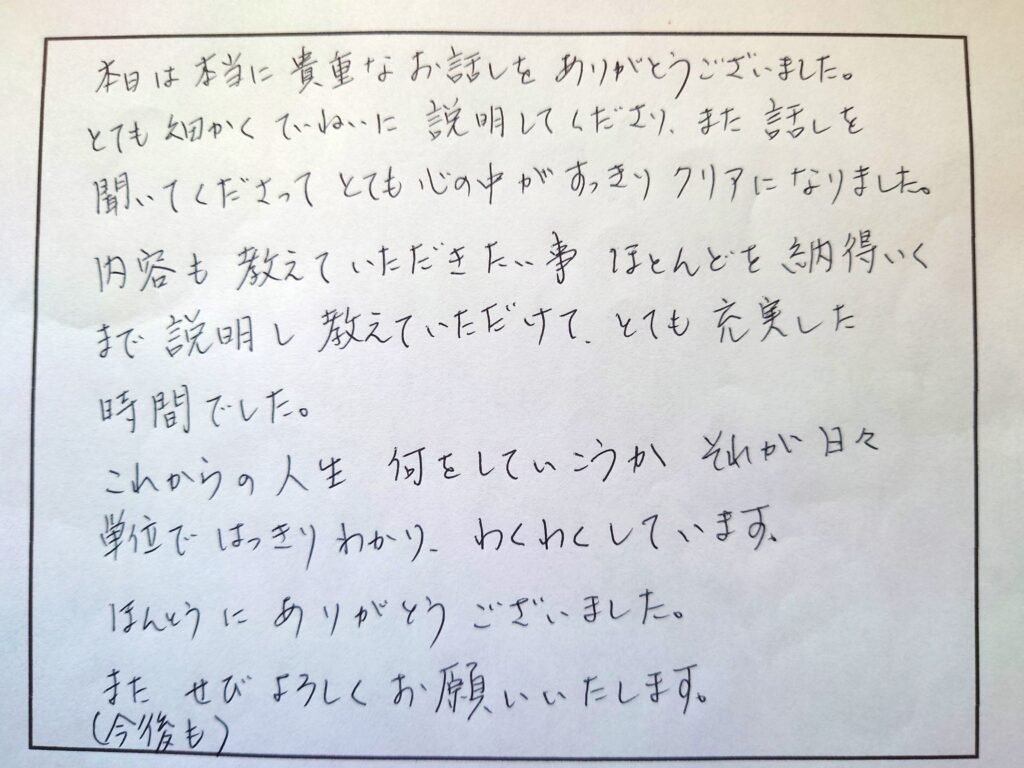 本日は本当に貴重なお話しをありがとうございました。
とても細かくていねいに説明してくださり、また話しを
聞いてくださってとても心の中がすっきりクリアになりました。
内容も教えていただきたい事ほとんどを納得いく
まで説明し教えていただけて、とても充実した
時間でした。
これからの人生 何をしていこうか それが日々
単位ではっきりわかり、わくわくしています。
ほんとうにありがとうございました。
また ぜひよろしくお願いいたします。
(今後も)